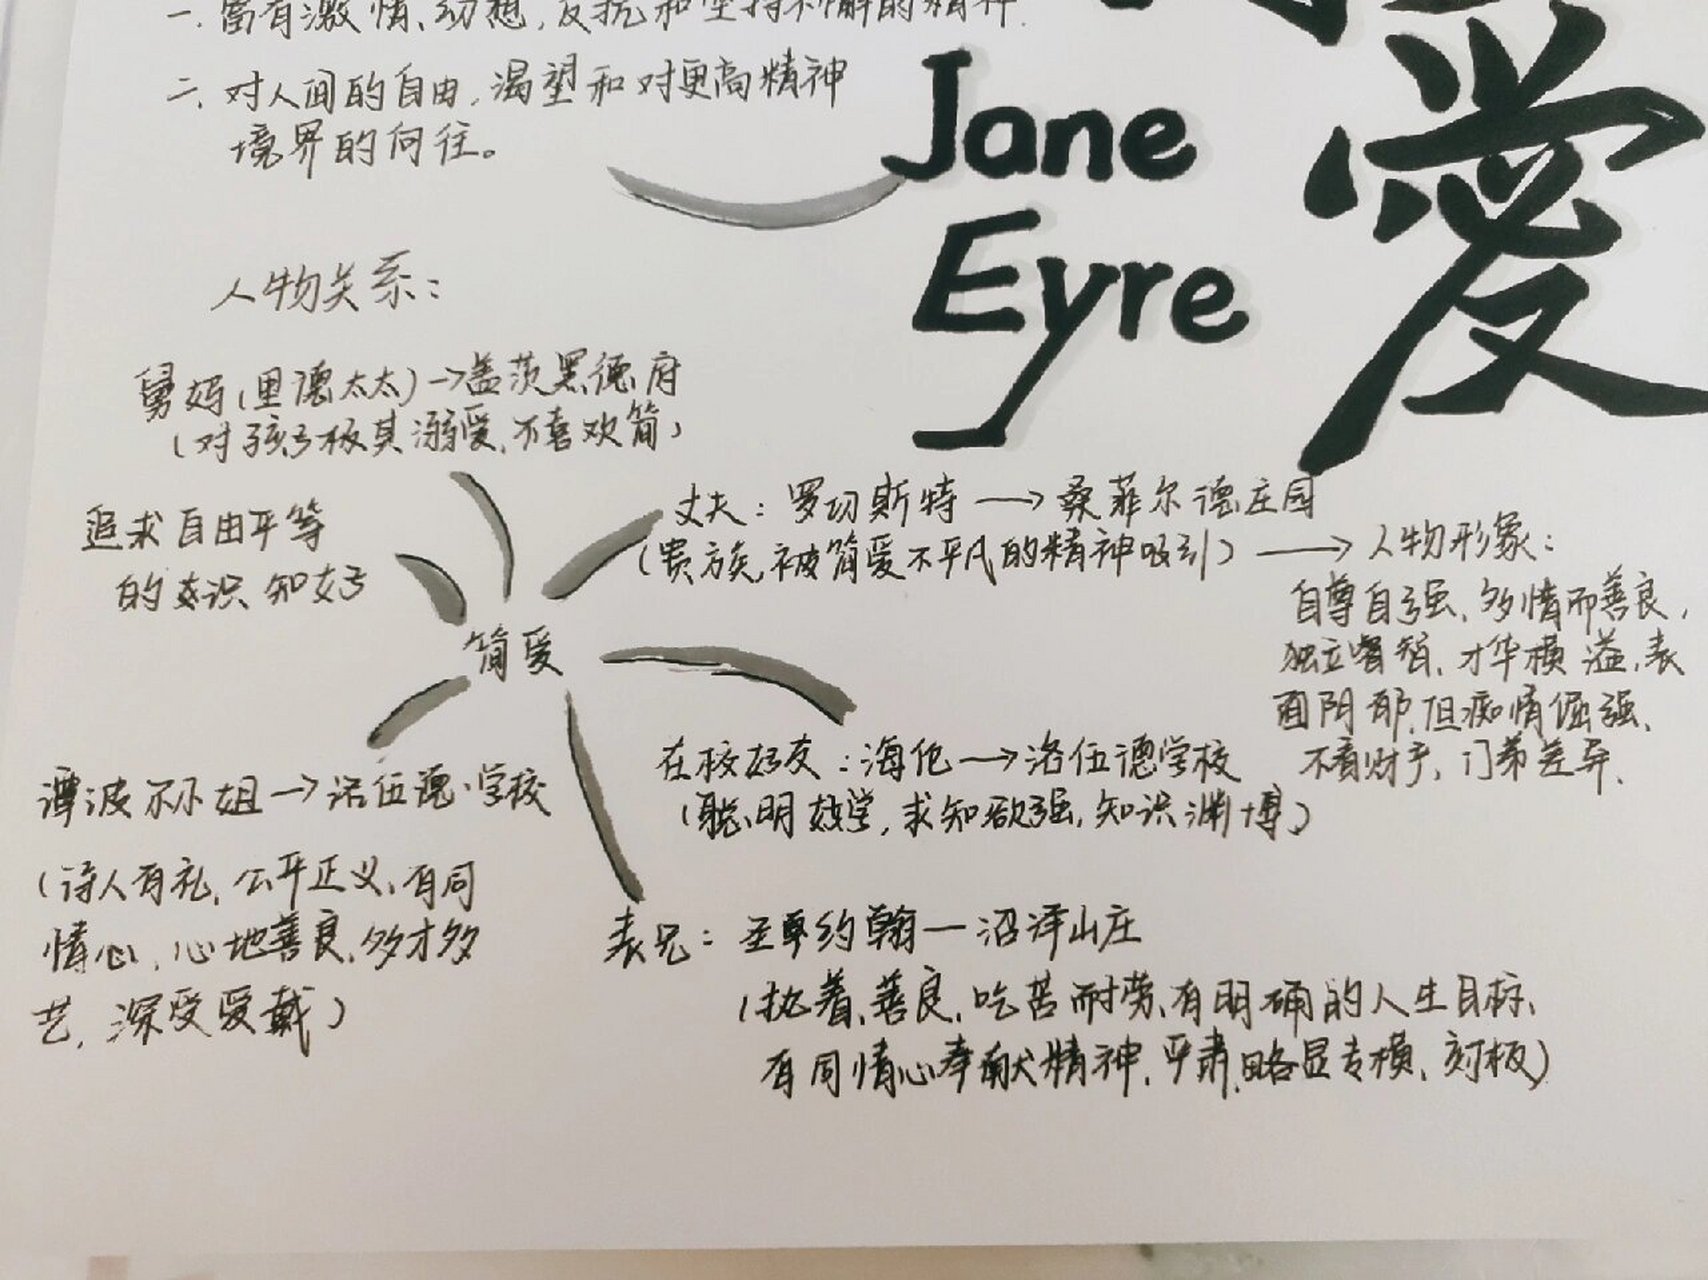 一、富有激情、幻想、反抗和坚持不懈的精神.
二、对人间的自由,渴望和对更高精神
境界的向往。
Jane
Eyre
愛
人物关系:
舅妈(里德太太)→盖茨黑德府
(对孩子极其溺爱,不喜欢简)
追求自由平等
的意识、知好
简爱
丈夫:罗切斯特→桑菲尔德庄园
(贵族,被简爱不平凡的精神吸引)→人物形象:
自尊自强、多情而善良,
独立睿智、才华横溢、表
面阴郁,但痴情倔强、
不看财手、门第差异.
在校好友:海伦→洛伍德学校
(聪明好学,求知欲强,知识渊博)
谭波尔小姐→洛伍德学校
(待人有礼,公平正义,有同
情心,心地善良,多才多
艺,深受爱戴)
表兄:圣约翰—沼泽山庄
(执着、善良、吃苦耐劳、有明确的人生目标、
有同情心奉献精神,严肃,略显专横、刻板)